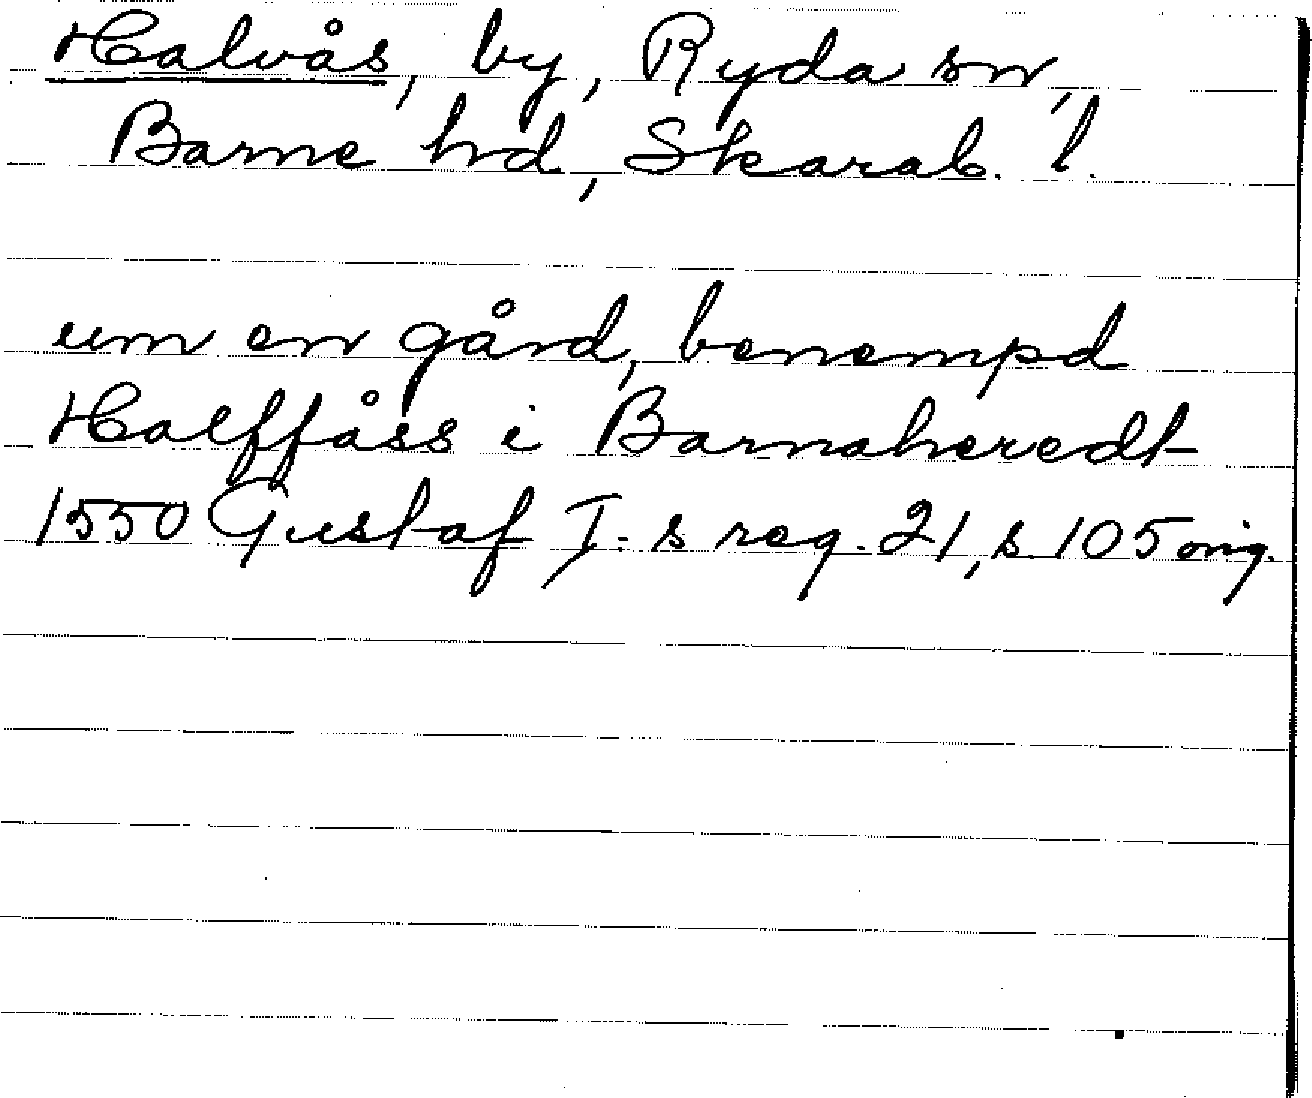 Halvås, by, Ryda sn,
Barne hd, Skarab. l.
um en gård, benempd
Halffåss i Barnaheredt
1550 Gustaf I:s reg. 21, s 105 orig.